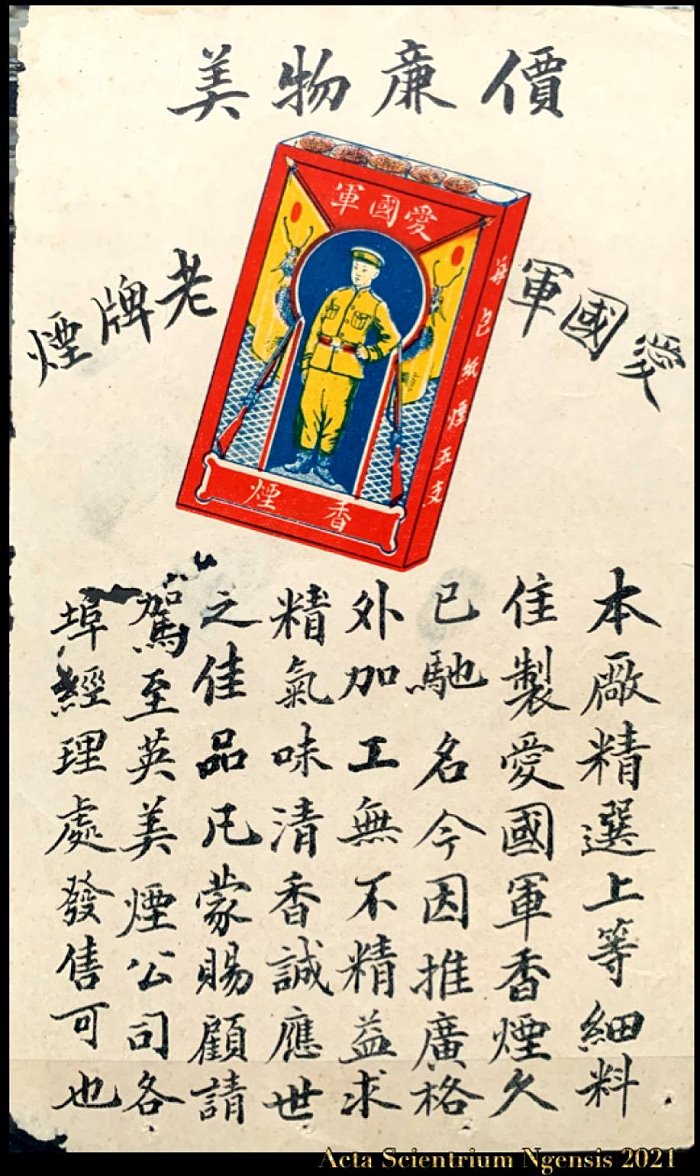 價廉物美
愛國軍
老牌煙
愛國軍
香煙
每包紙煙五支
本廠精選上等細料
住製愛國軍香煙久
已馳名今因推廣格
外加工無不精益求
精氣味清香誠應世
之佳品凡蒙賜顧請
駕至英美煙公司各
埠經理處發售可也
Acta Scientrium Ngensis 2021